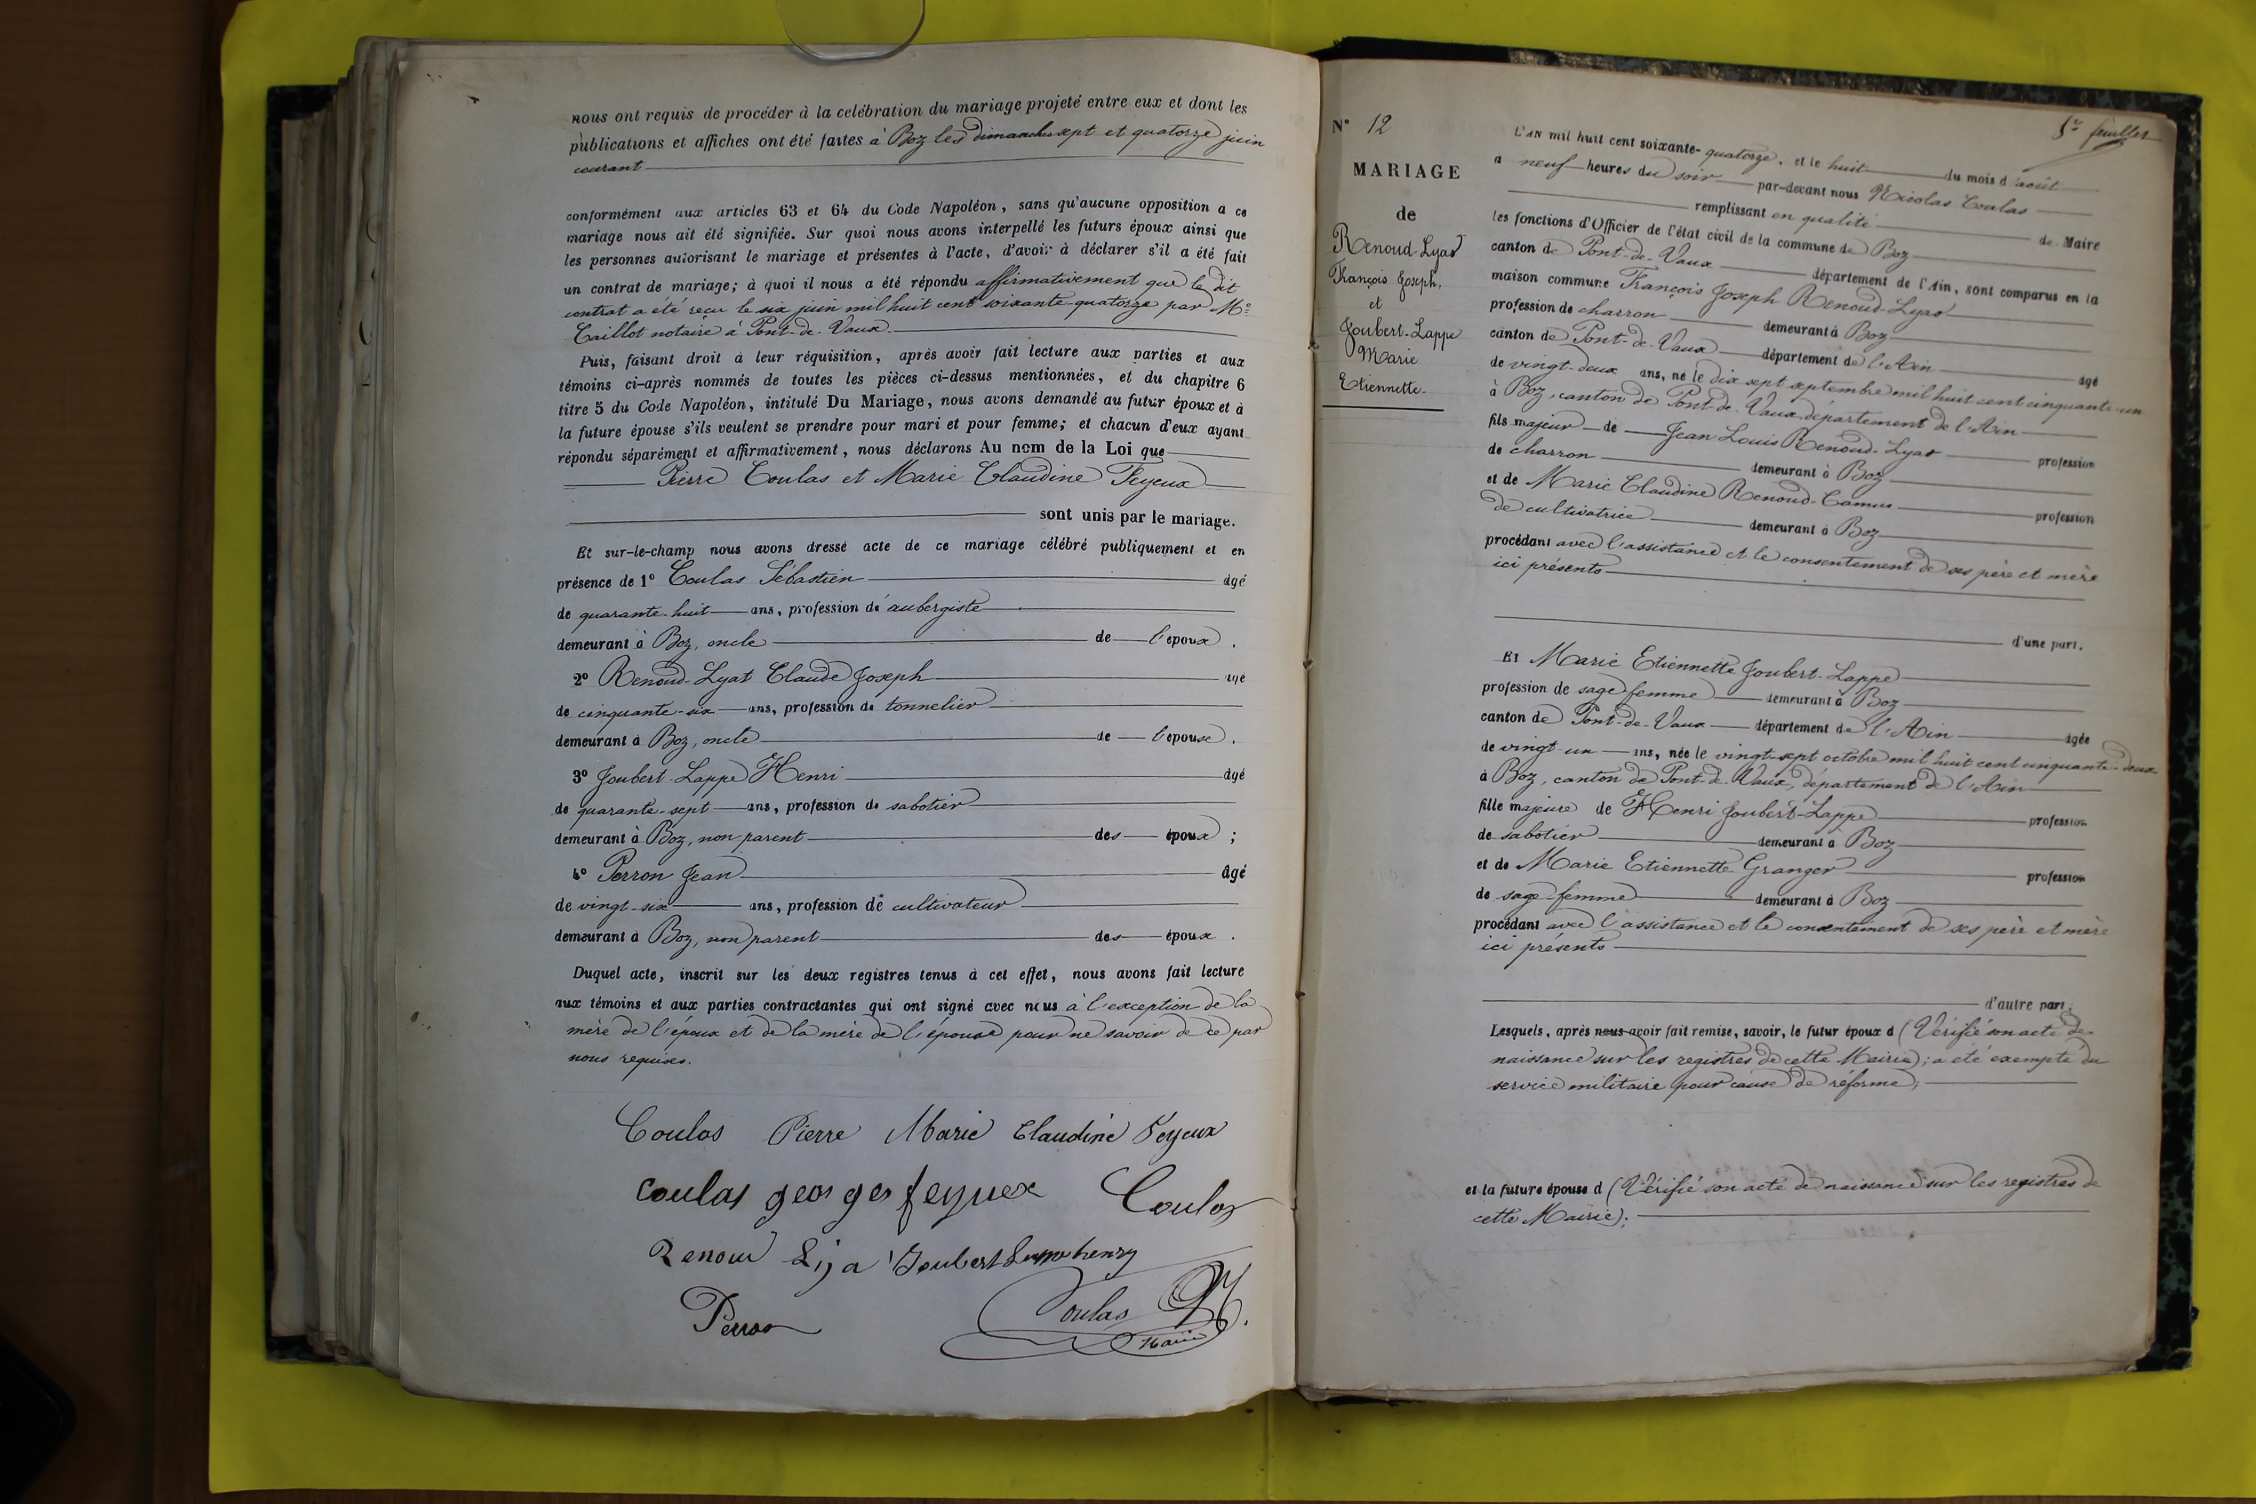 nous ont requis de procéder à la celébration du mariage projeté entre eux et dont les
publications et affiches ont été faites à Boz les dimanches sept et quatorze juin
courant
conformément aux articles 63 et 64 du Code Napoléon, sans qu'aucune opposition a ce
mariage nous ait été signifiée. Sur quoi nous avons interpellé les futurs époux ainsi que
les personnes autorisant le mariage et présentes à l'acte, d'avoir à déclarer s'il a été fait
un contrat de mariage; à quoi il nous a été répondu affirmativement que le dit
contrat a été reçu le six juin mil huit cent soixante-quatorze par Me
Caillot notaire à Pont-de-Vaux
Puis, faisant droit à leur réquisition, après avoir fait lecture aux parties et aux
témoins ci-après nommés de toutes les pièces ci-dessus mentionnées, et du chapitre 6
titre 5 du Code Napoléon, intitulé Du Mariage, nous avons demandé au futur époux et à
la future épouse s'ils veulent se prendre pour mari et pour femme; et chacun d'eux ayant
répondu séparément et affirmativement, nous déclarons Au nom de la Loi que
Pierre Coulas et Marie Claudine Feyeux
sont unis par le mariage.
Et sur-le-champ nous avons dressé acte de ce mariage célébré publiquement et en
présence de 1° Coulas Sébastien âgé
de quarante-huit ans, profession d'aubergiste
demeurant à Boz, oncle de l'époux.
2° Renoud-Lyat Claude Joseph âgé
de cinquante-six ans, profession de tonnelier
demeurant à Boz, oncle de l'épouse.
3° Joubert-Lappe Henri âgé
de quarante-sept ans, profession de sabotier
demeurant à Boz, non parent des époux;
4° Perron Jean âgé
de vingt-six ans, profession de cultivateur
demeurant à Boz, non parent des époux.
Duquel acte, inscrit sur les deux registres tenus à cet effet, nous avons fait lecture
aux témoins et aux parties contractantes qui ont signé avec nous à l'exception de la
mère de l'époux et de la mère de l'épouse pour ne savoir de ce par
nous requises.
Coulas Pierre Marie Claudine Feyeux
coulas georges feyuex Coulas
Renou Lya Joubert Lappe henry
Perron Coulas
Maire
5e feuillet
N° 12
MARIAGE
de
Renoud-Lyat
François Joseph.
et
Joubert-Lappe
Marie
Etiennette.
L'AN mil huit cent soixante-quatorze, et le huit du mois d'août
a neuf heures du soir par-devant nous Nicolas Coulas
remplissant en qualité de Maire
les fonctions d'Officier de l'état civil de la commune de Boz
canton de Pont-de-Vaux département de l'Ain, sont comparus en la
maison commune François Joseph Renoud-Lyat
profession de charron demeurant à Boz
canton de Pont-de-Vaux département de l'Ain âgé
de vingt-deux ans, né le dix sept septembre mil huit cent cinquante-un
à Boz, canton de Pont-de-Vaux, département de l'Ain
fils majeur de Jean Louis Renoud-Lyat profession
de charron demeurant à Boz
et de Marie Claudine Renoud-Camus profession
de cultivatrice demeurant à Boz
procédant avec l'assistance et le consentement de ses père et mère
ici présents
d'une part.
Et Marie Etiennette Joubert-Lappe
profession de sage femme demeurant à Boz
canton de Pont-de-Vaux département de l'Ain âgée
de vingt-un ans, née le vingt-sept octobre mil huit cent cinquante-deux
à Boz, canton de Pont-de-Vaux, département de l'Ain
fille majeure de Henri Joubert-Lappe profession
de sabotier demeurant à Boz
et de Marie Etiennette Granger profession
de sage-femme demeurant à Boz
procédant avec l'assistance et le consentement de ses père et mère
ici présents
d'autre part;
Lesquels, après nous avoir fait remise, savoir, le futur époux d (Vérifié son acte de
naissance sur les registres de cette Mairie); a été exempté du
service militaire pour cause de réforme;
et la future épouse d (Vérifié son acte de naissance sur les registres de
cette Mairie);